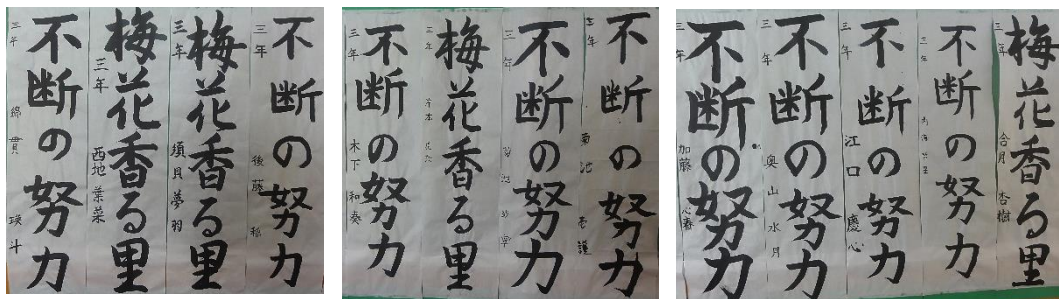 不断の努力
三年 後藤
梅花香る里
三年 須貝 夢羽
梅花香る里
三年 西地 葉菜
不断の努力
三年 綿貫 瑛斗
不断の努力
三年 菊池
不断の努力
三年
梅花香る里
三年
不断の努力
三年 木下 和奏
梅花香る里
三年 杏樹
不断の努力
三年
不断の努力
三年 江口 慶心
不断の努力
三年 奥山 水月
不断の努力
三年 加藤 心春